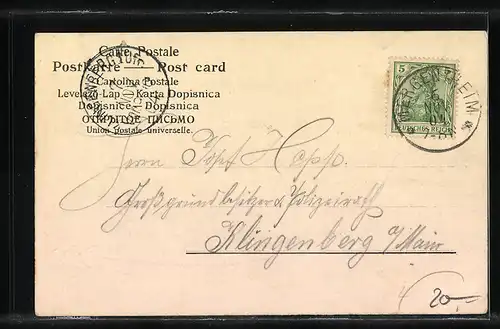 Carte Postale
Postkarte Post card
Cartolina Postale
Levelező-Lap - Karta Dopisnica
Dopisnice - Dopisnica
ОТКРЫТОЕ ПИСЬМО
Union postale universelle.
5 5
DEUTSCHES REICH
MERGENTHEIM
Herrn Josef
Großgrundbesitzer & Polizeirath
Klingenberg a/Main
20,-